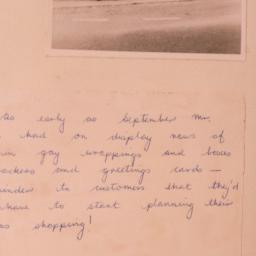 as early as September Mr.
had on display rows of
in gay wrappings and boxes
and greetings cards —
to customers that they'd
have to start planning their
shopping!